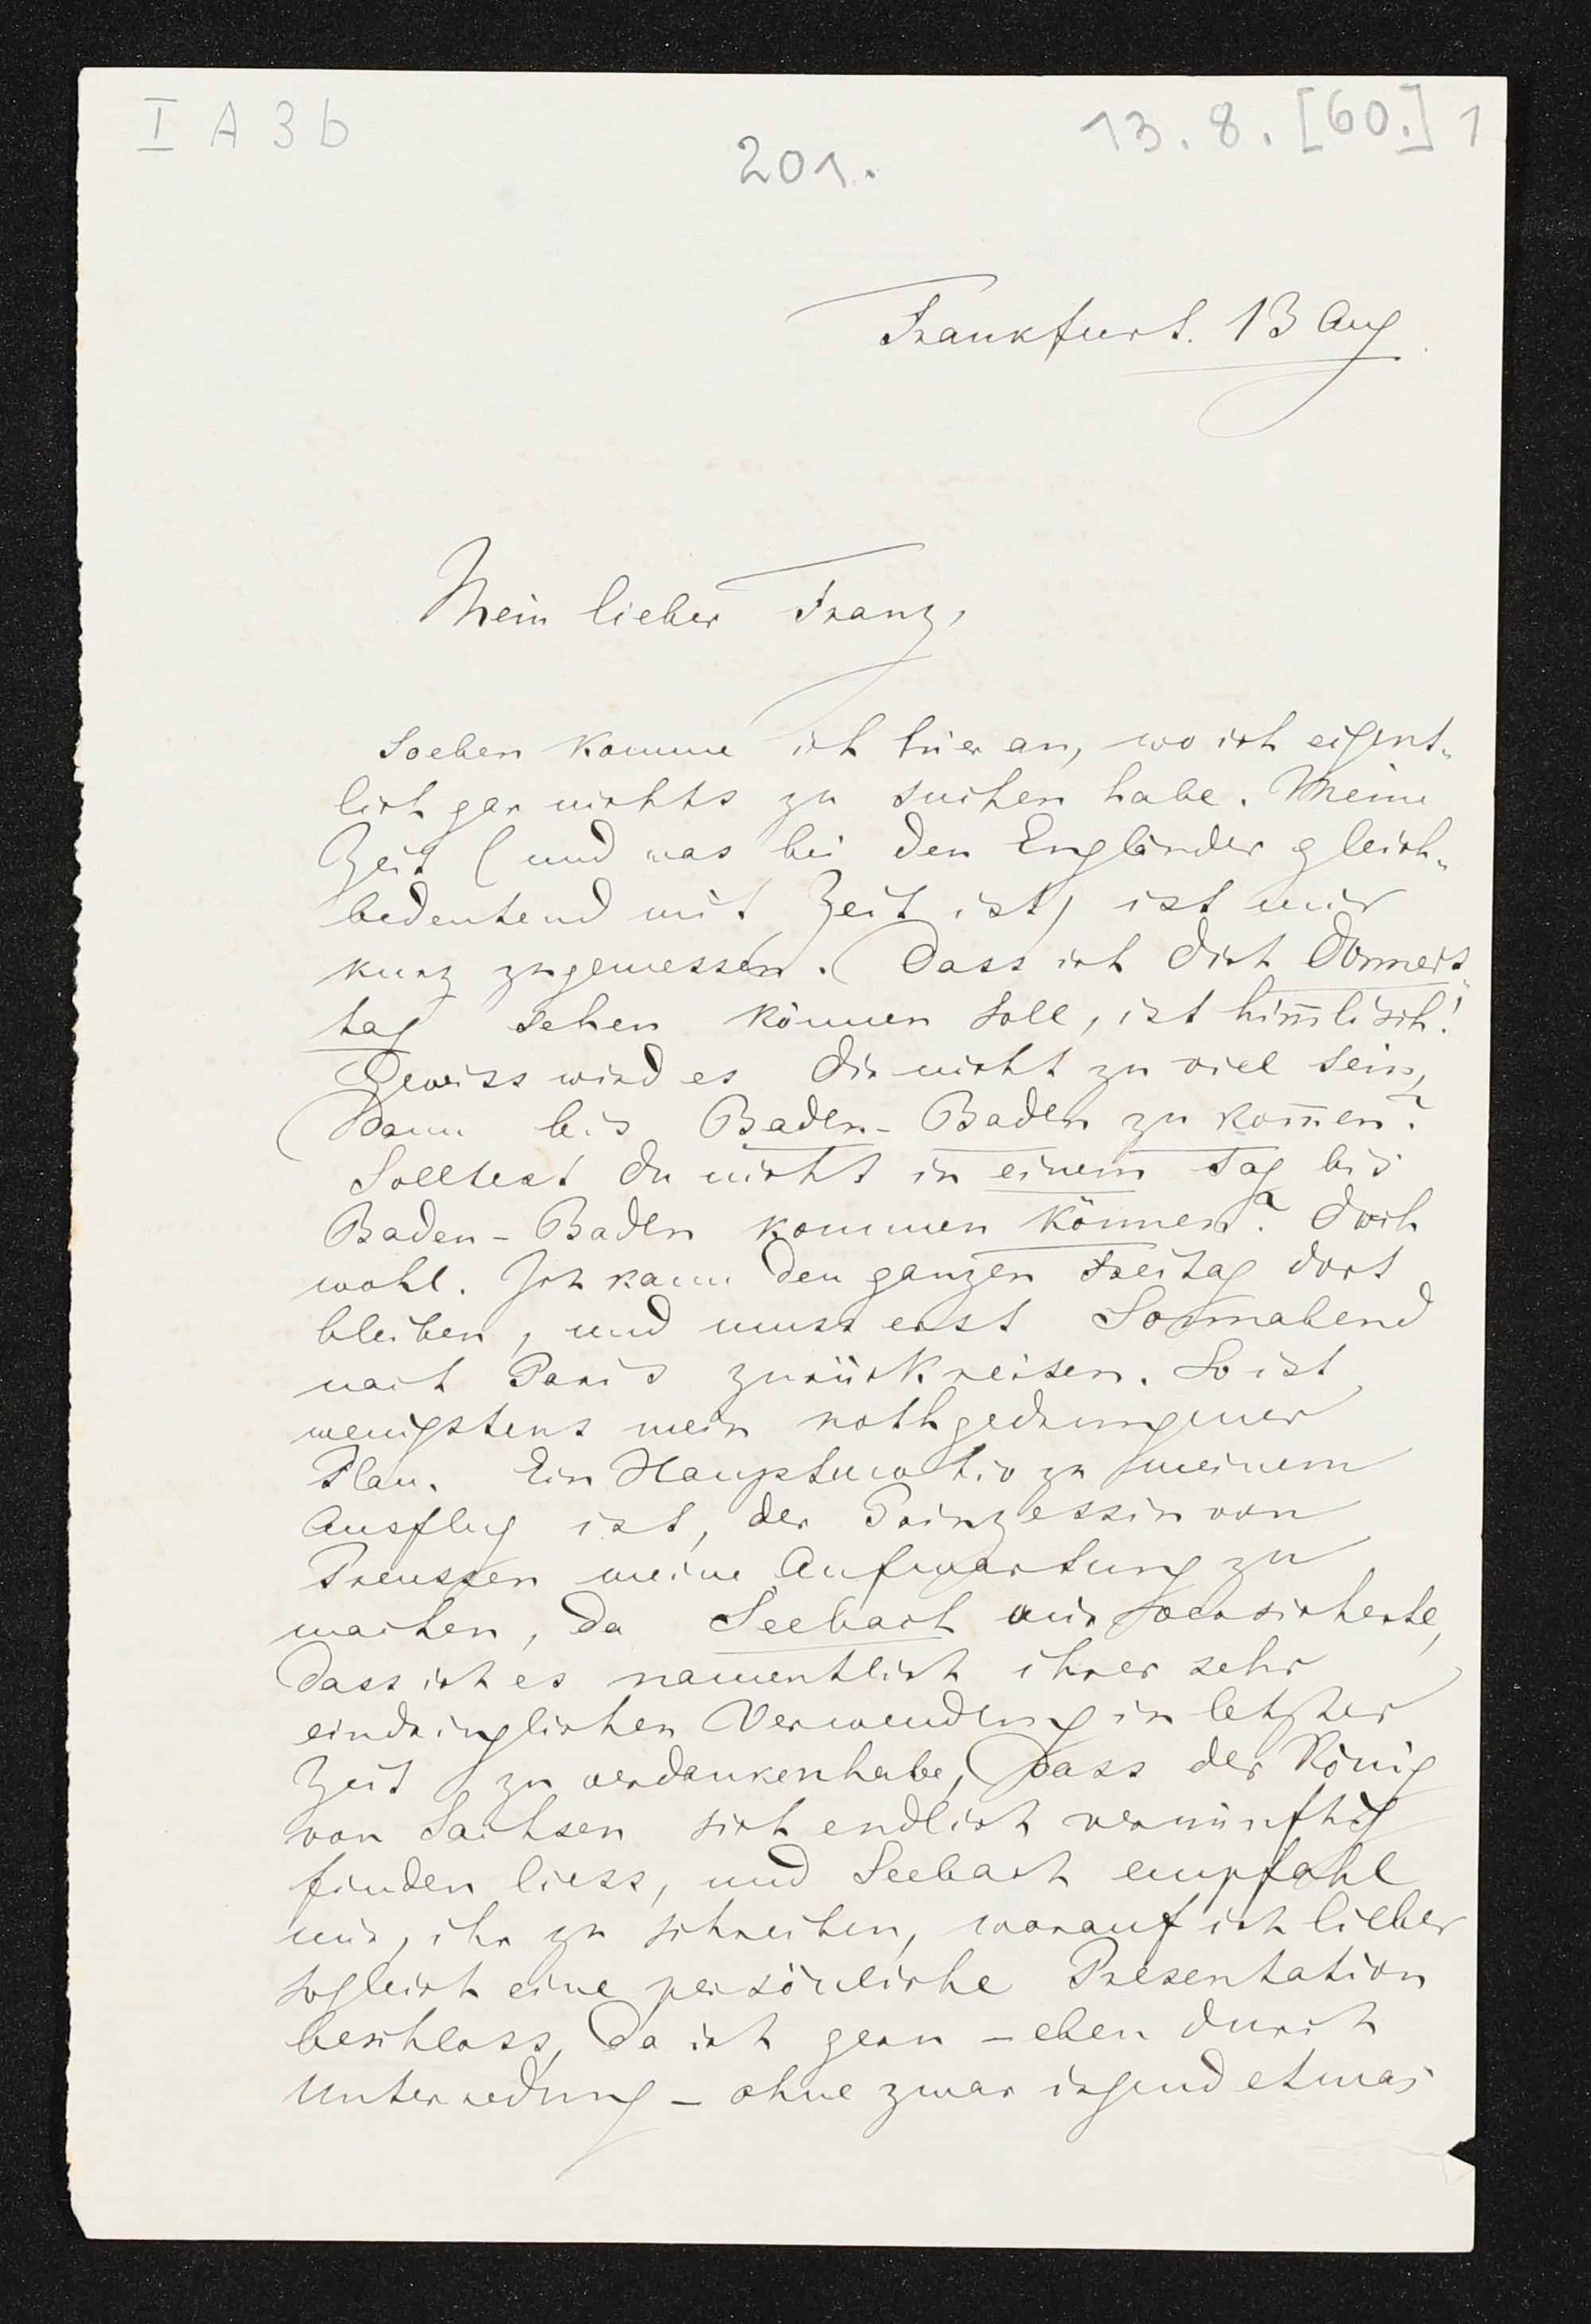 I A 3 b
13. 8. [60.] 1
201.
Frankfurt. 13 Aug.
Mein lieber Franz,
Soeben komme ich hier an, wo ich eigent-
lich gar nichts zu suchen habe. Meine
Zeit (und was bei den Engländer gleich-
bedeutend mit Zeit ist) ist mir
kurz zugemessen. Dass ich dich Donners-
tag sehen können soll, ist him̅lisch!
Gewiss wird es dir nicht zu viel sein,
dann bis Baden-Baden zu kom̅en?
Solltest du nicht in einem Tag bis
Baden-Baden kommen können? Doch
wohl. Ich kann den ganzen Freitag dort
bleiben, und muss erst Sonnabend
nach Paris zurückreisen. So ist
wenigstens mein nothgedrungener
Plan. Ein Hauptmotiv zu meinem
Ausflug ist, der Prinzessin von
Preussen meine Aufwartung zu
machen, da Seebach mir versicherte,
dass ich es namentlich ihrer sehr
eindringlichen Verwendung in letzter
Zeit zu verdanken habe, dass der König
von Sachsen sich endlich vernünftig
finden liess, und Seebach empfahl
mir, ihr zu schreiben, worauf ich lieber
sogleich eine persönliche Presentation
beschloss, da ich gern – eben durch
Unterredung – ohne zwar irgend etwas